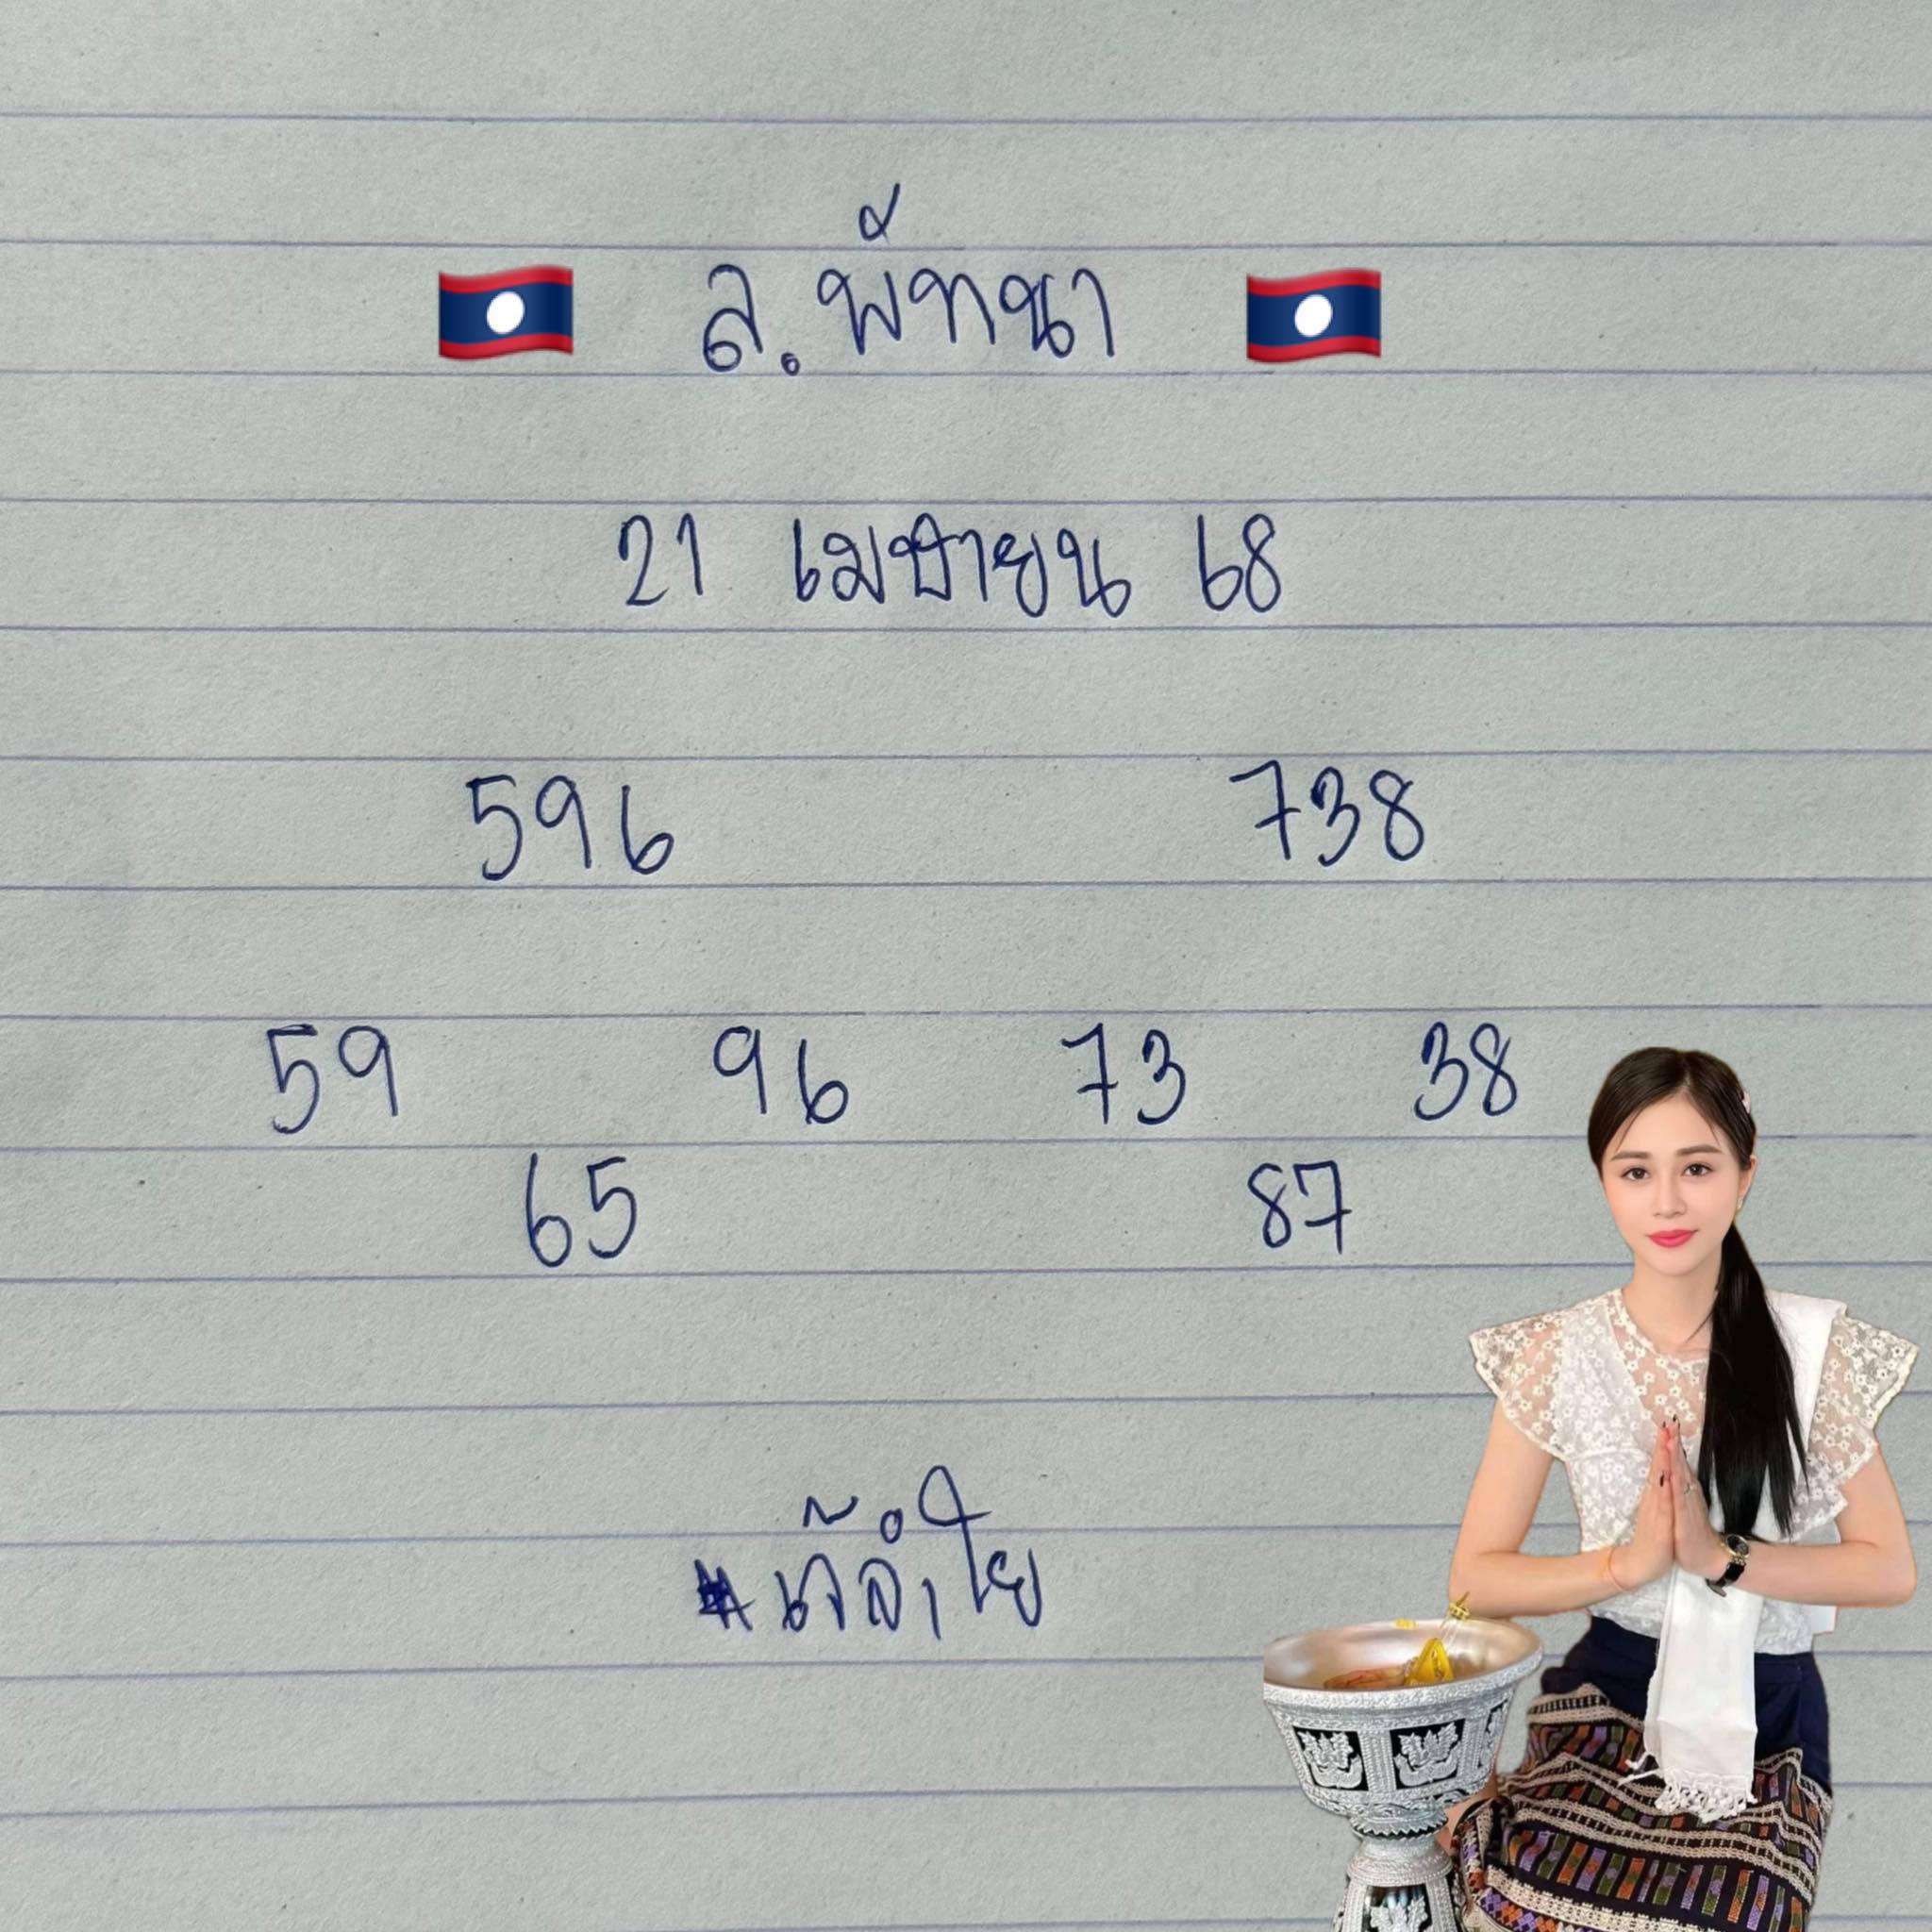 ล.พัฒนา
21 เมษายน 68
596 738
59 96 73 38
65 87